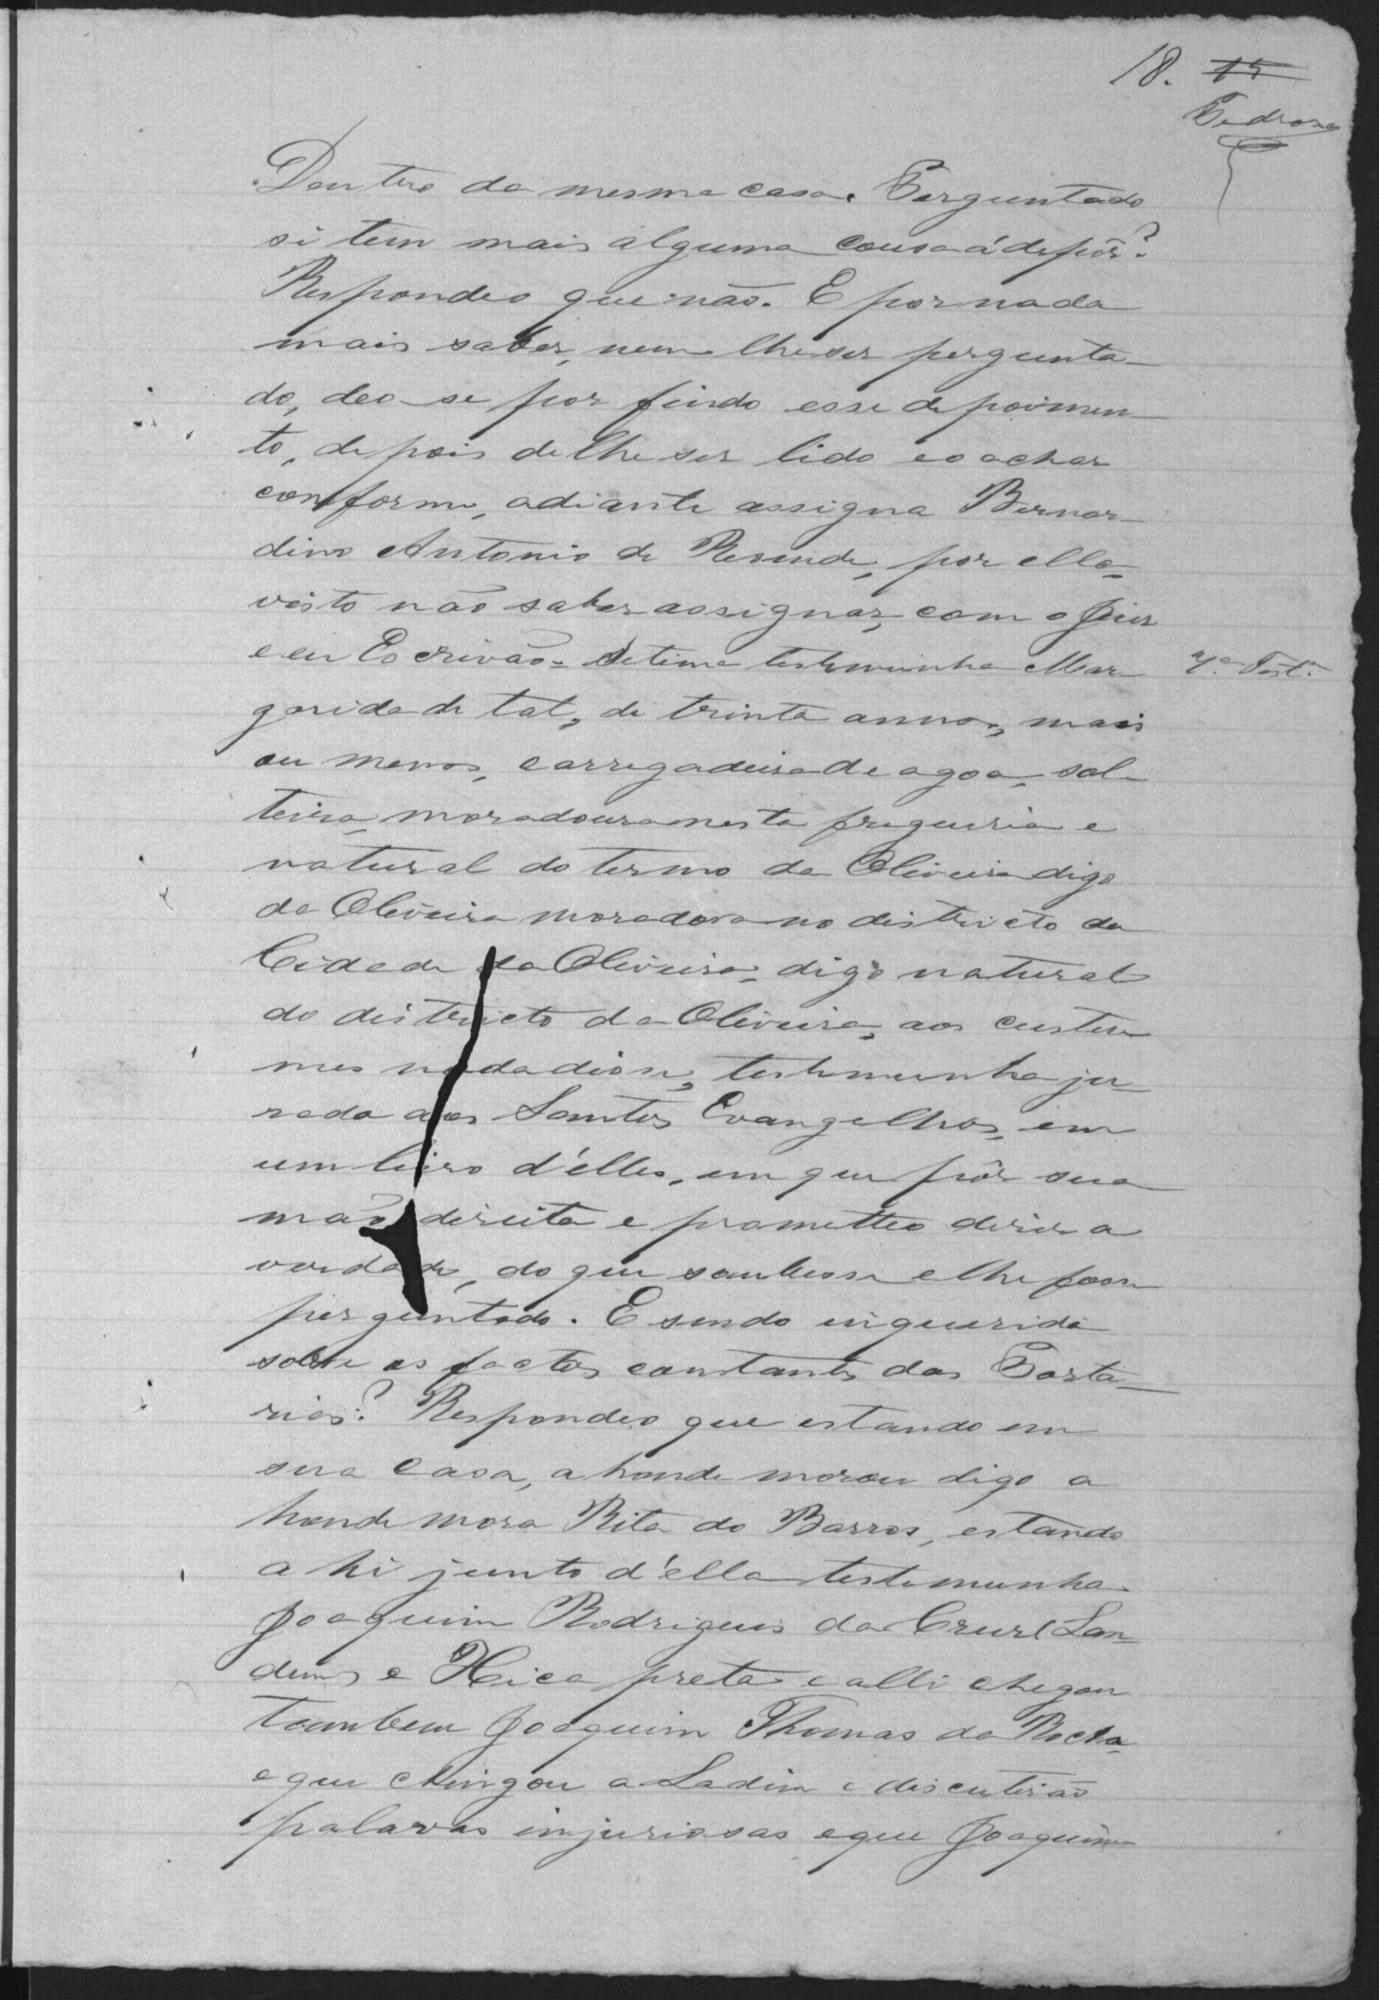 18. 15
Pedrosa
Dentro da mesma casa. Perguntado
si tem mais alguma cousa á depôr?
Respondeo que não. E por nada
mais saber, nem lhe ser pergunta-
do, deo-se por findo esse depoimen-
to, depois de lhe ser lido e o achar
conforme, adiante assigna Bernar-
dino Antonio de Resende, por ella,
visto não saber assignar, com o Juiz
e eu Escrivão. Setima testemunha Mar-
7ª Test.ª
garida de tal, de trinta annos, mais
ou menos, carregadeira de agoa, sol-
teira, moradoura nesta freguesia e
natural do termo da Oliveira digo
da Oliveira moradora no districto da
Cidade da Oliveira, digo natural
do districto da Oliveira, aos custu-
mes nada disse, testemunha ju-
rada aos Santos Evangelhos, em
um livro d'elles, em que pôr sua
mão direita e prometteo diser a
verdade, do que soubesse e lhe fosse
perguntado. E sendo inquerida
sobre os factos constantes das Porta-
rias? Respondeo que estando em
sua casa, a honde morou digo a
honde mora Rita do Barros, estando
a hi junto d'ella testemunha
Joaquim Rodrigues da Cruz Lan-
dim e Xica preta e alli chegou
tambem Joaquim Thomas da Rocha
e que chingou a Ladim e discutirão
palavras injuriosas e que Joaquim